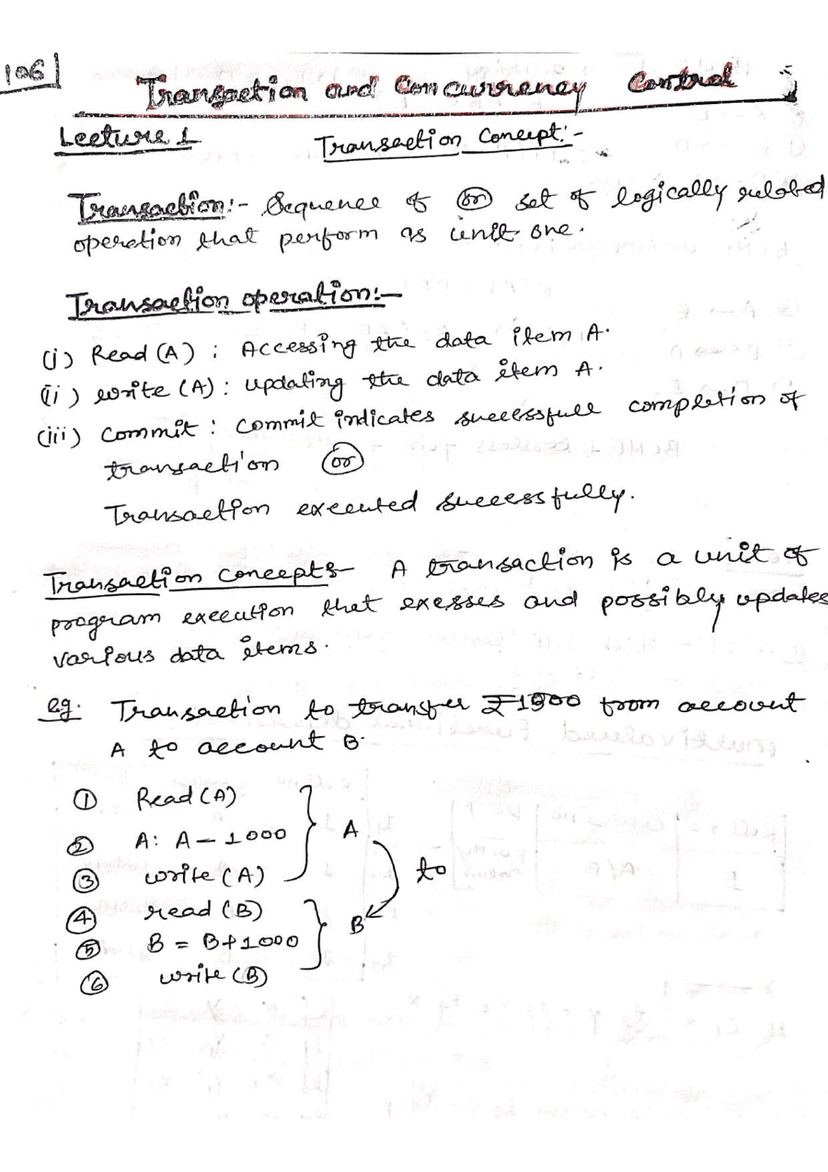 106
Transaction and Concurrency Control
Lecture 1 Transaction Concept:-
Transaction:- Sequence of (or) set of logically related
operation that perform as unit one.
Transaction operation:-
(i) Read (A) : Accessing the data item A.
(ii) write (A) : updating the data item A.
(iii) commit : commit indicates successfull completion of
transaction (or)
Transaction executed successfully.
Transaction concepts- A transaction is a unit of
program execution that exesses and possibly updates
various data items.
eg. Transaction to transfer ₹1000 from account
A to account B.
① Read (A)
② A: A - 1000 A
③ write (A) to
④ read (B)
⑤ B = B+1000 B
⑥ write (B)